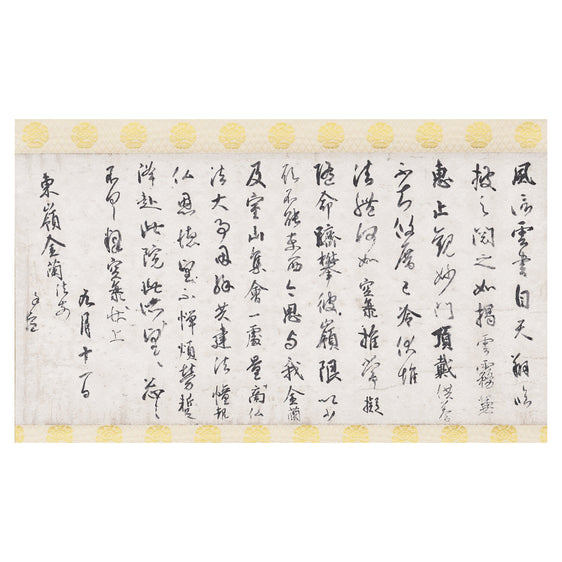 風信雲書自天翔臨
披之閲之如揭雲霧兼
惠止觀妙門頂戴供養
不知攸厝已冷伏惟
法體何如空海推常擬
隨命躋攀彼嶺限以少
願不能東西今思与我金蘭
及室山集會一處量商仏
法大事因緣共建法幢報
仏恩德望不憚煩勞蹔
降赴此院此所望々忩々
不具釋空海狀上
九月十一日
東嶺金蘭法前
謹空